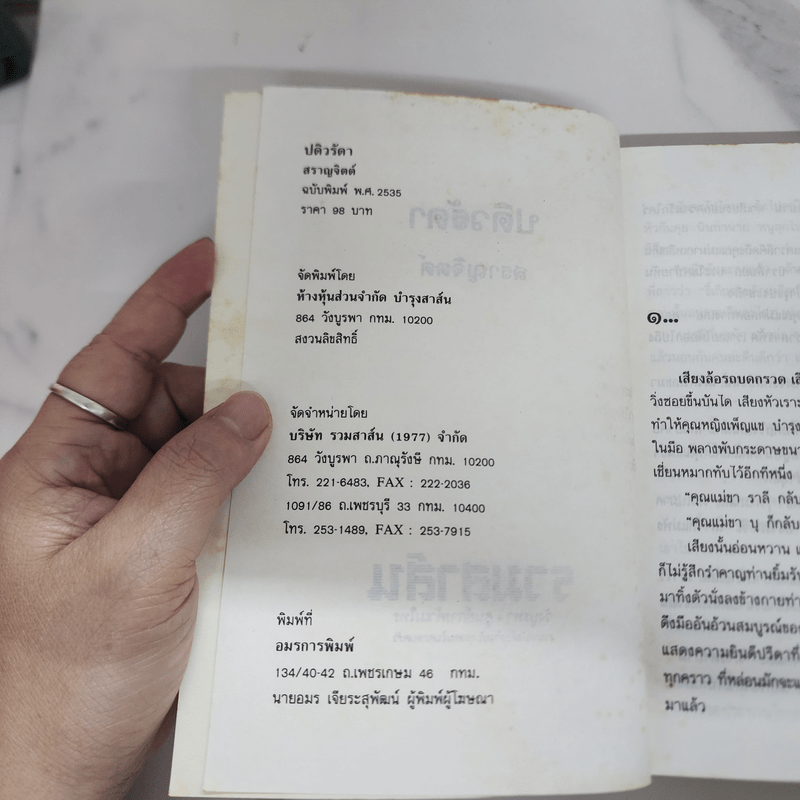 ปดิวรัดา
สราญจิตต์
ฉบับพิมพ์ พ.ศ. 2535
ราคา 98 บาท
จัดพิมพ์โดย
ห้างหุ้นส่วนจำกัด บำรุงสาส์น
864 วังบูรพา กทม. 10200
สงวนลิขสิทธิ์
จัดจำหน่ายโดย
บริษัท รวมสาส์น (1977) จำกัด
864 วังบูรพา ถ.ภาณุรังษี กทม. 10200
โทร. 221-6483, FAX : 222-2036
1091/86 ถ.เพชรบุรี 33 กทม. 10400
โทร. 253-1489, FAX : 253-7915
พิมพ์ที่
อมรการพิมพ์
134/40-42 ถ.เพชรเกษม 46 กทม.
นายอมร เจียระสุพัฒน์ ผู้พิมพ์ผู้โฆษณา
๑...
เสียงล้อรถบดกรวด
วิ่งซอยขึ้นบันได เสียงหัวเราะ
ทำให้คุณหญิงเพ็ญแข บำรุง
ในมือ พลางพับกระดาษ
เชี่ยนหมากทับไว้อีกทีหนึ่ง
“คุณแม่ขา ราลี กลับ
“คุณแม่ขา บุ ก็กลับ
เสียงนั้นอ่อนหวาน
ก็ไม่รู้สึกรำคาญท่านยิ้มรับ
มาทิ้งตัวนั่งลงข้างกายท่า
ดึงมืออันอ้วนสมบูรณ์ของ
แสดงความยินดีปรีดาที่
ทุกคราว ที่หล่อนมักจะ
มาแล้ว